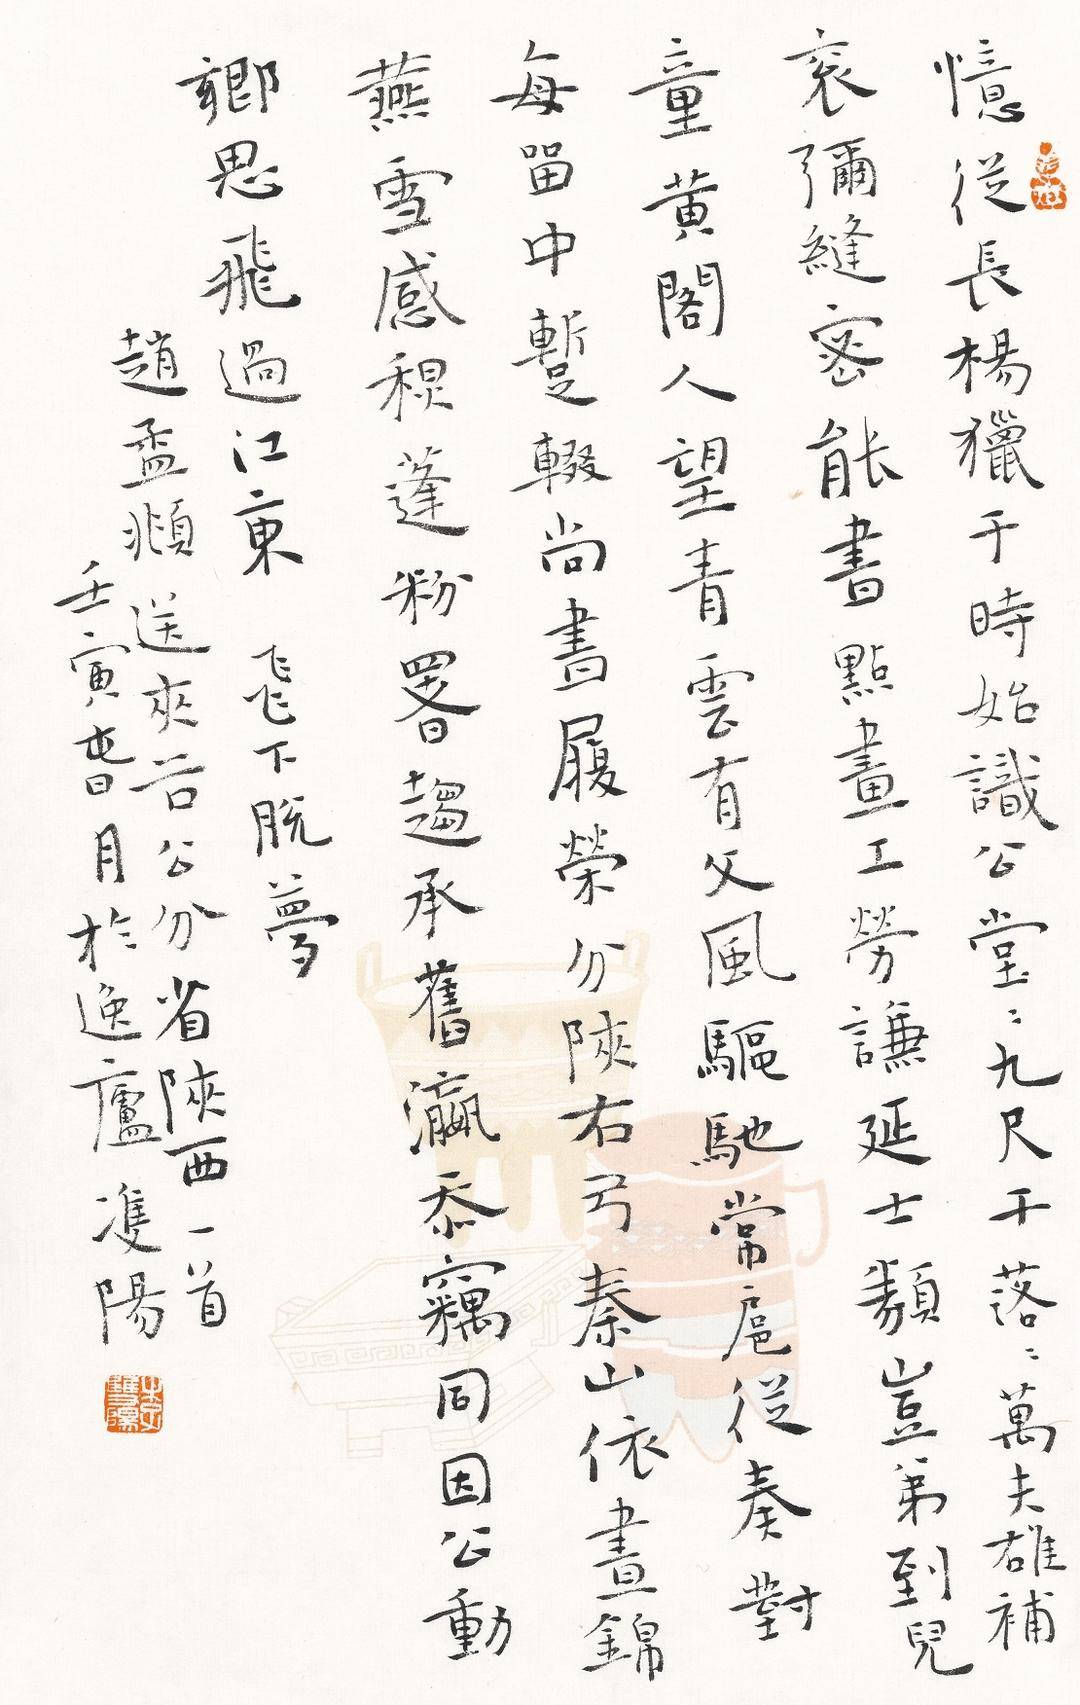 憶從長楊獵于時始識公堂〻九尺干落〻萬夫雄補
袞彌縫密能書點畫工勞謙延士類豈弟到兒
童黄閣人望青雲有父風驅馳常扈從奏對
每留中蹔輟尚書履榮分陝右弓秦山依晝錦
燕雪感穐蓬粉署趨承舊瀛忝竊同因公動
鄉思飛過江東 飞下脫夢
趙孟頫送夾谷公分省陝西一首
壬寅春月於逸廬淩陽